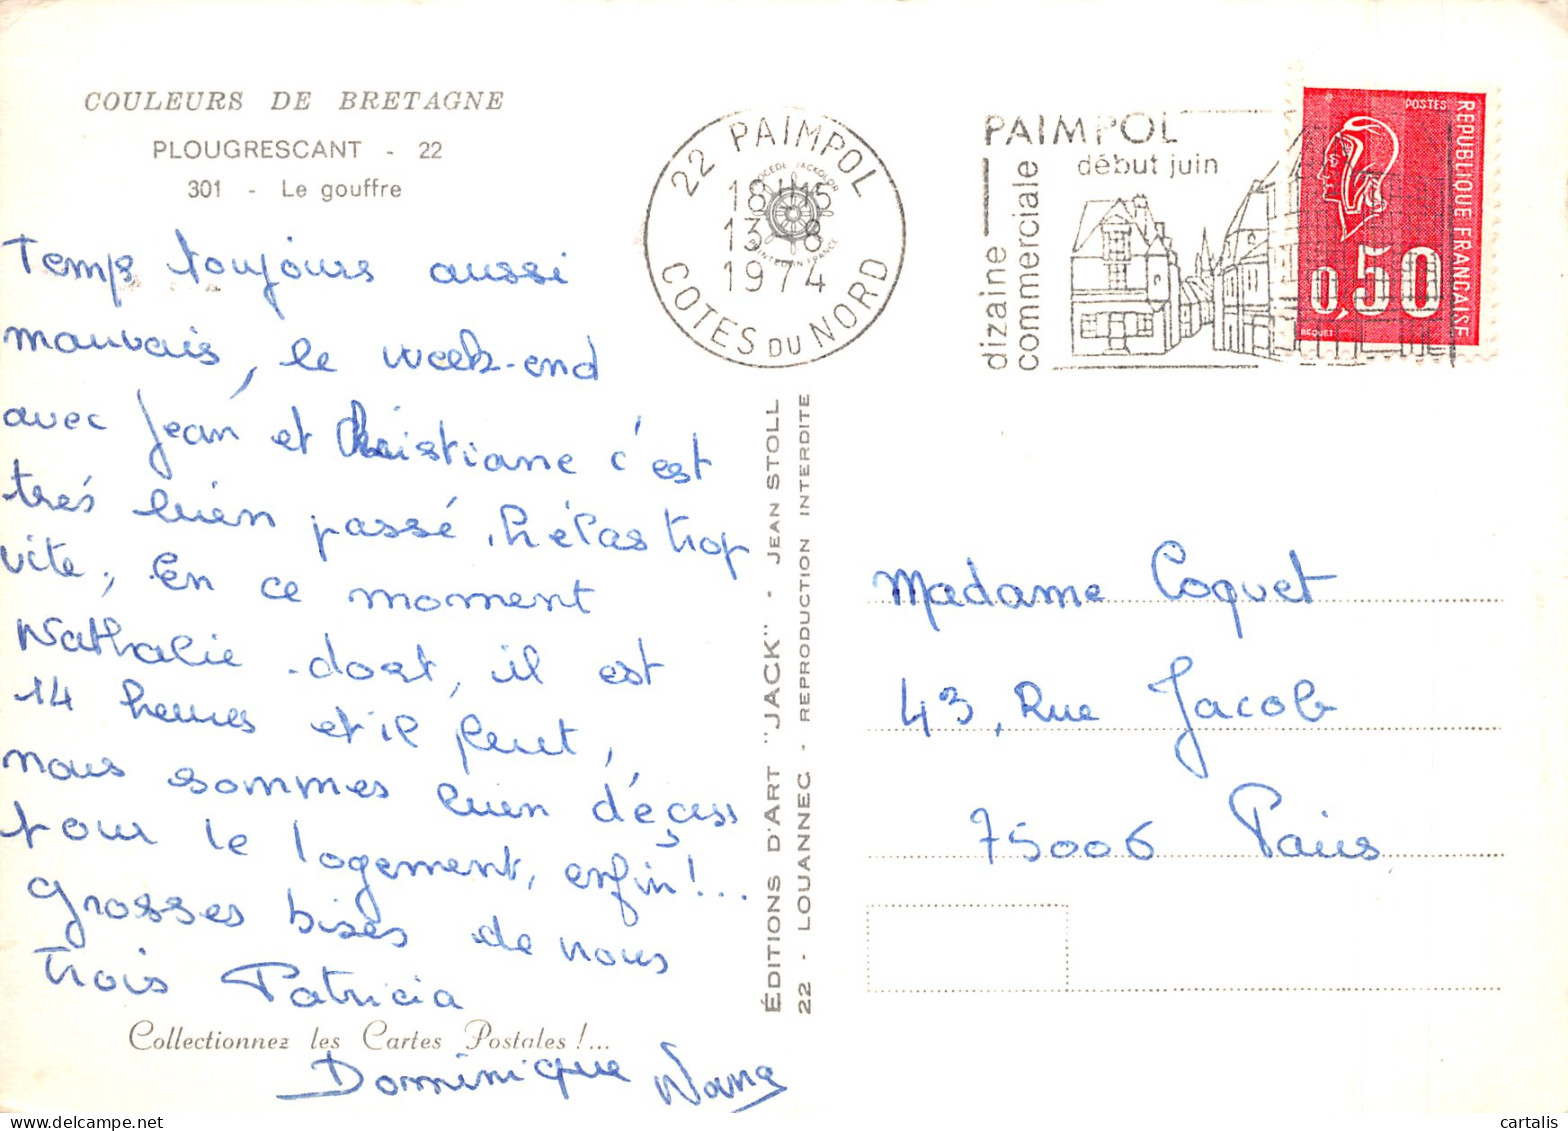 COULEURS DE BRETAGNE
PLOUGRESCANT - 22
301 - Le gouffre
Temps toujours aussi
mauvais, le week-end
avec Jean et Christiane c'est
trés bien passé, hélas trop
vite, En ce moment
Nathalie dort, il est
14 heures et il pleut,
nous sommes bien d'éçus
pour le logement, enfin!...
Grosses bises de nous
trois Patricia
Collectionnez les Cartes Postales !...
Dominique Nana
22 PAIMPOL
18H15
13-8
1974
COTES DU NORD
PROCEDE JACKCOLOR
PAIMPOL
début juin
dizaine
commerciale
POSTES
REPUBLIQUE FRANCAISE
0,50
BEQUET
ÉDITIONS D'ART "JACK" - JEAN STOLL
22 - LOUANNEC - REPRODUCTION INTERDITE
Madame Coquet
43, Rue Jacob
75006 Paris
cartalis